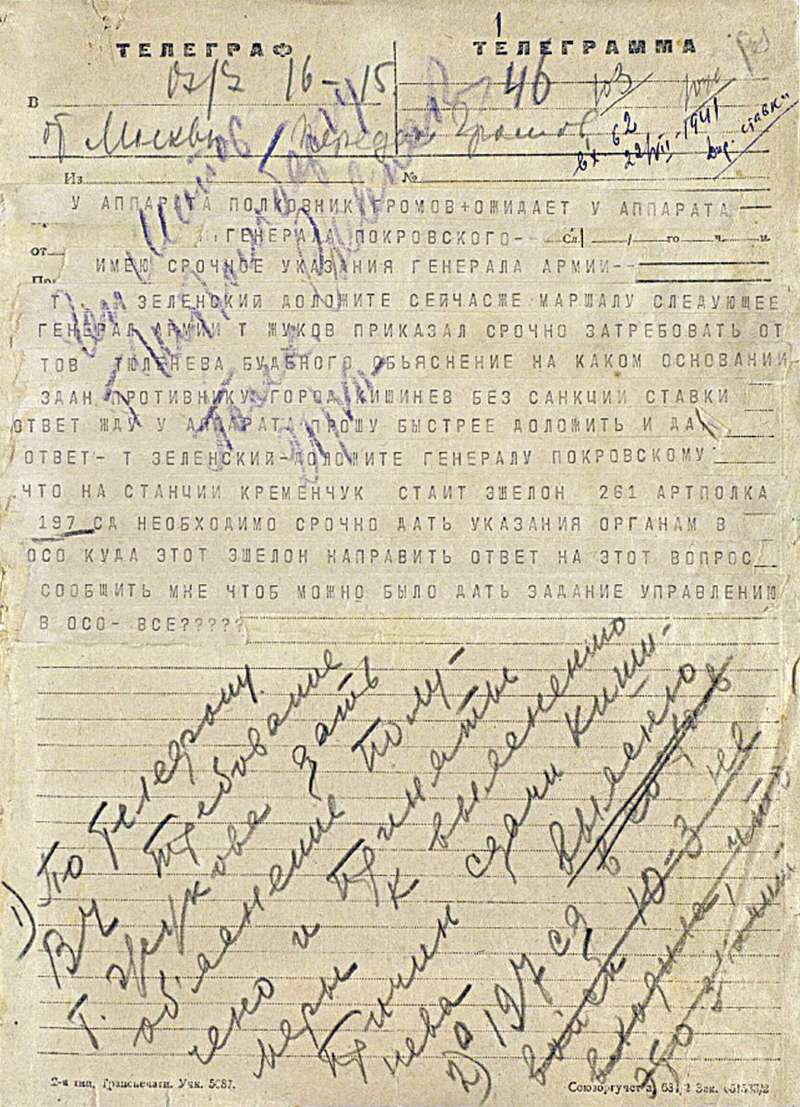 1
ТЕЛЕГРАФ ТЕЛЕГРАММА
В 16-15 46 103
от Москвы передал Громов
вх. 62
22/VII-1941
Из №
У АППАРАТА ПОЛКОВНИК ГРОМОВ+ОЖИДАЕТ У АППАРАТА
ГЕНЕРАЛА ПОКРОВСКОГО-- Сл. го ч. м.
от
ИМЕЮ СРОЧНОЕ УКАЗАНИЯ ГЕНЕРАЛА АРМИИ--
Т ЗЕЛЕНСКИЙ ДОЛОЖИТЕ СЕЙЧАСЖЕ МАРШАЛУ СЛЕДУЮЩЕЕ
ГЕНЕРАЛ АРМИИ Т ЖУКОВ ПРИКАЗАЛ СРОЧНО ЗАТРЕБОВАТЬ ОТ
ТОВ ТЮЛЕНЕВА БУДЕНОГО ОБЬЯСНЕНИЕ НА КАКОМ ОСНОВАНИИ
ЗДАН ПРОТИВНИКУ ГОРОД КИШИНЕВ БЕЗ САНКЦИИ СТАВКИ
ОТВЕТ ЖДУ У АППАРАТА ПРОШУ БЫСТРЕЕ ДОЛОЖИТЬ И ДАТ
ОТВЕТ- Т ЗЕЛЕНСКИЙ-ДОЛОЖИТЕ ГЕНЕРАЛУ ПОКРОВСКОМУ
ЧТО НА СТАНЦИИ КРЕМЕНЧУК СТАИТ ЭШЕЛОН 261 АРТПОЛКА
197 СД НЕОБХОДИМО СРОЧНО ДАТЬ УКАЗАНИЯ ОРГАНАМ В
ОСО КУДА ЭТОТ ЭШЕЛОН НАПРАВИТЬ ОТВЕТ НА ЭТОТ ВОПРОС
СООБЩИТЬ МНЕ ЧТОБ МОЖНО БЫЛО ДАТЬ ЗАДАНИЕ УПРАВЛЕНИЮ
В ОСО- ВСЕ????
1) По телефону
ВЧ требование
т. Жукова дать
объяснение полу-
чено и приняты
меры к выяснению
причин сдачи Киши-
нева
2) О 197 сд выясняю
в состав
войск Ю-З не
входила, что
2-я тип. Трансжелдориздат